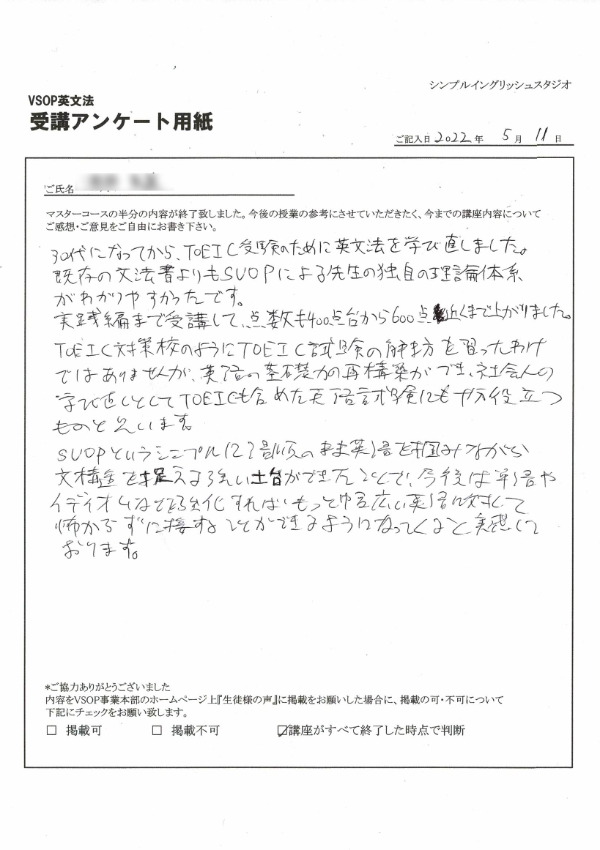 シンプルイングリッシュスタジオ
VSOP英文法
受講アンケート用紙
ご記入日 2022 年 5 月 11 日
ご氏名
マスターコースの半分の内容が終了致しました。今後の授業の参考にさせていただきたく、今までの講座内容について
ご感想・ご意見をご自由にお書き下さい。
30代になってから、TOEIC受験のために英文法を学び直しました。
既存の文法書よりもSVOPによる先生の独自の理論体系
がわかりやすかったです。
実践編まで受講して、点数も400点台から600点近くまで上がりました。
TOEIC対策校のようにTOEIC試験の解き方を習ったわけ
ではありませんが、英語の基礎力の再構築ができ、社会人の
学び直しとしてTOEICも含めた英語試験にも十分役立つ
ものと思います。
SVOPというシンプルな語順のまま英語を掴みながら
文構造を捉える強い土台ができたことで、今後は単語や
イディオムなどを強化すればもっと幅広い英語に対して
怖がらずに接することができるようになってくると実感して
おります。
*ご協力ありがとうございました
内容をVSOP事業本部のホームページ上『生徒様の声』に掲載をお願いした場合に、掲載の可・不可について
下記にチェックをお願い致します。
□ 掲載可 □ 掲載不可 ☑講座がすべて終了した時点で判断